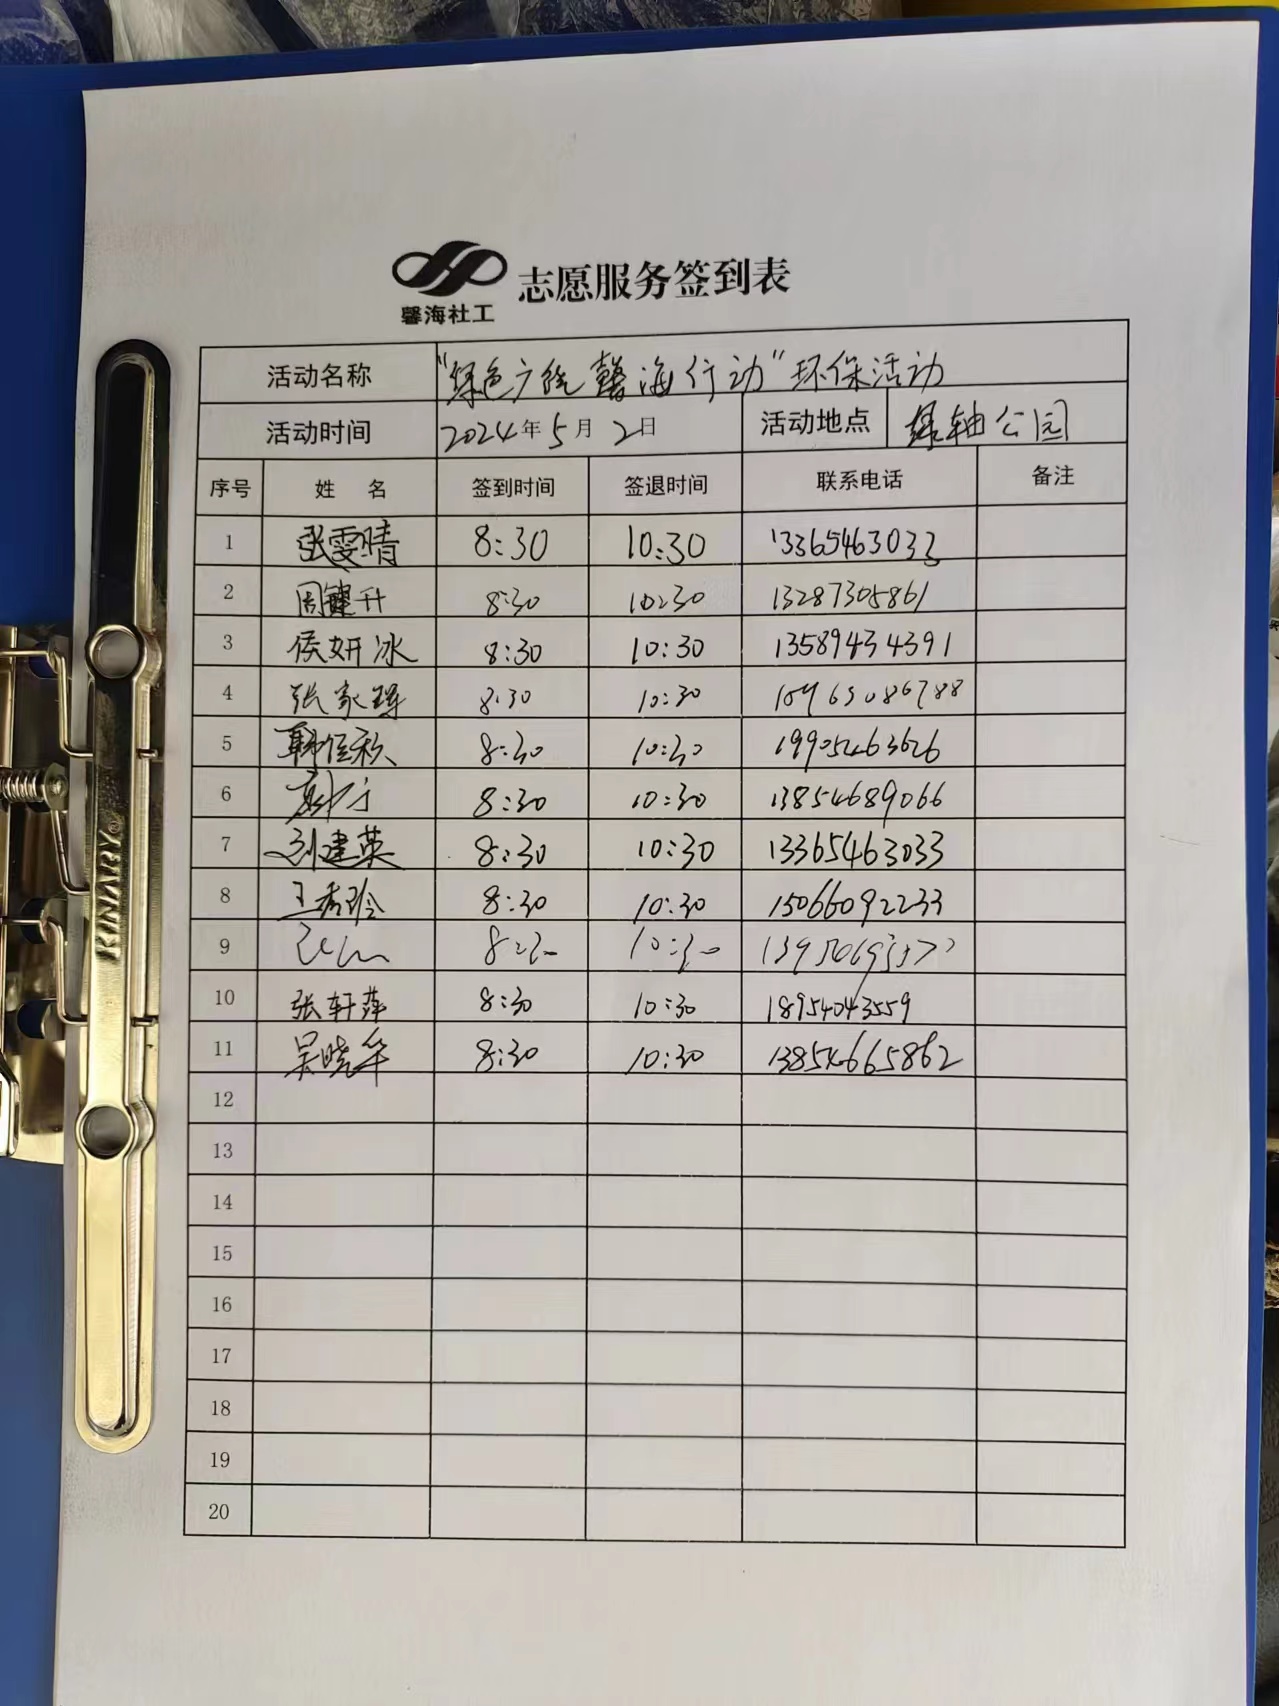 馨海社工
志愿服务签到表
活动名称 "绿色广饶 馨海行动"环保活动
活动时间 2024年5月2日 活动地点 绿轴公园
序号 姓 名 签到时间 签退时间 联系电话 备注
1 张雯晴 8:30 10:30 13365463033
2 周健升 8:30 10:30 13287305861
3 侯妍冰 8:30 10:30 13589434391
4 张家 8:30 10:30
5 8:30 10:30 19905463626
6 8:30 10:30 13854689066
7 刘建英 8:30 10:30 13365463033
8 王秀玲 8:30 10:30 15066092233
9 8:30 10:30
10 张轩萍 8:30 10:30 18954043559
11 吴晓华 8:30 10:30 13854665862
12
13
14
15
16
17
18
19
20
KINARY®